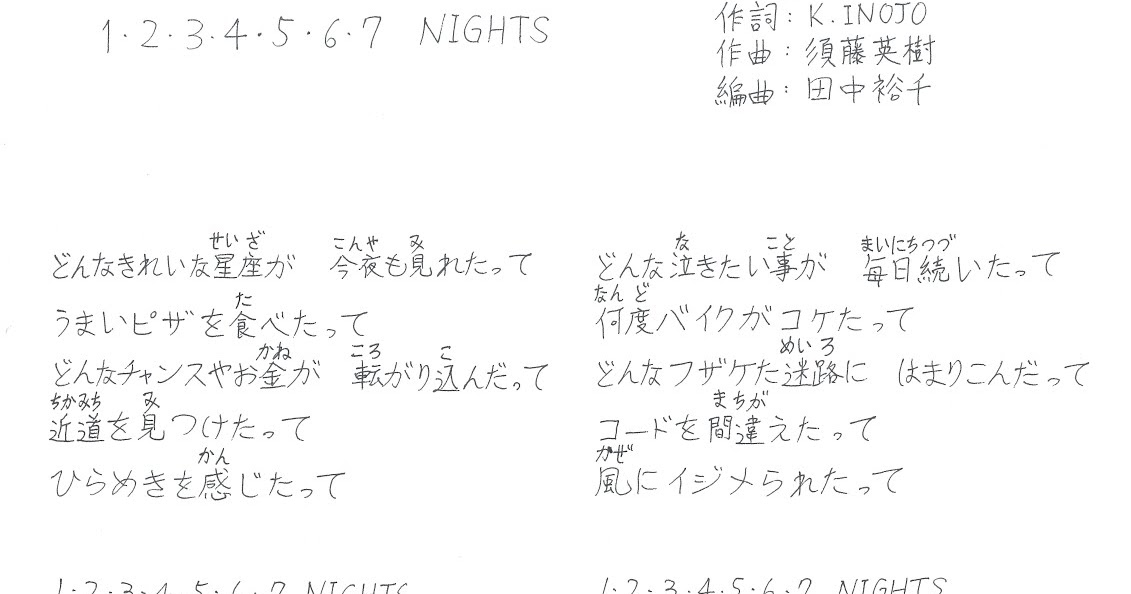 1・2・3・4・5・6・7 NIGHTS
作詞：K.INOJO
作曲：須藤英樹
編曲：田中裕千
せいざ こんや み
どんなきれいな星座が 今夜も見れたって
た
うまいピザを食べたって
かね ころ こ
どんなチャンスやお金が 転がり込んだって
ちかみち み
近道を見つけたって
かん
ひらめきを感じたって
1・2・3・4・5・6・7 NIGHTS
な こと まいにちつづ
どんな泣きたい事が 毎日続いたって
なんど
何度バイクがコケたって
めいろ
どんなフザケた迷路に はまりこんだって
まちが
コードを間違えたって
かぜ
風にイジメられたって
1・2・3・4・5・6・7 NIGHTS